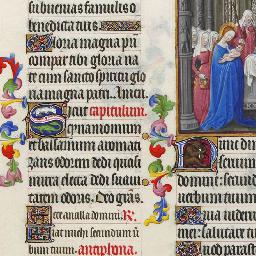 subvenias famulis o
benedicta tuis
Gloria magna pri
compar tibi gloria na
te cum sancto spiritu glo
ria magna patri. Amen.
Sicut capitulum.
cynamomum
et balsamum aromati
zans odorem dedi quasi
mirra electa dedi suavi
tatem odoris. Deo gras.
Ecce ancilla domini. R.
Fiat michi secundum v
bum tuum. antiphona.
Nunc dimi
servum
domine: secund
verbum tuum
Quia viderunt
mei: salutare tu
Quod parasti